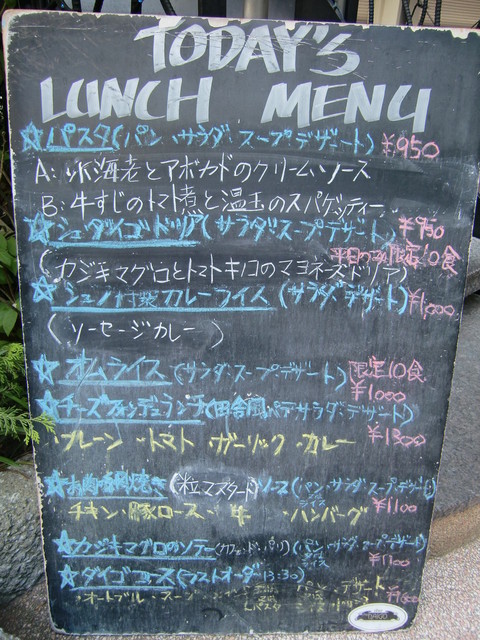 TODAY'S
LUNCH MENU
☆パスタ(パン・サラダ・スープ・デザート) ¥950
A:小海老とアボカドのクリームソース
B:牛すじのトマト煮と温玉のスパゲッティー
ダイゴドリア(サラダ・スープ・デザート) ¥950
限定10食
(カジキマグロとトマトキノコのマヨネーズドリア)
カレーライス(サラダ・デザート) ¥1,000
(ソーセージカレー)
☆オムライス(サラダ・スープ・デザート) 限定10食
¥1000
☆チーズフォンデュランチ(田舎風パテ・サラダ・デザート)
¥1300
・プレーン ・トマト ・ガーリック ・カレー
☆お肉の香草焼き(粒マスタード)ソース(パン・サラダ・スープ・デザート)
ライス
・チキン・豚ロース・牛 ・ハンバーグ ¥1100
☆カジキマグロのソテー(カフェ・ド・パリ)(パン・サラダ・スープ・デザート)
ライス ¥1100
☆ダイゴコース(ラストオーダー13:30)
・オードブル・スープ パン・デザート
パスタ ライス